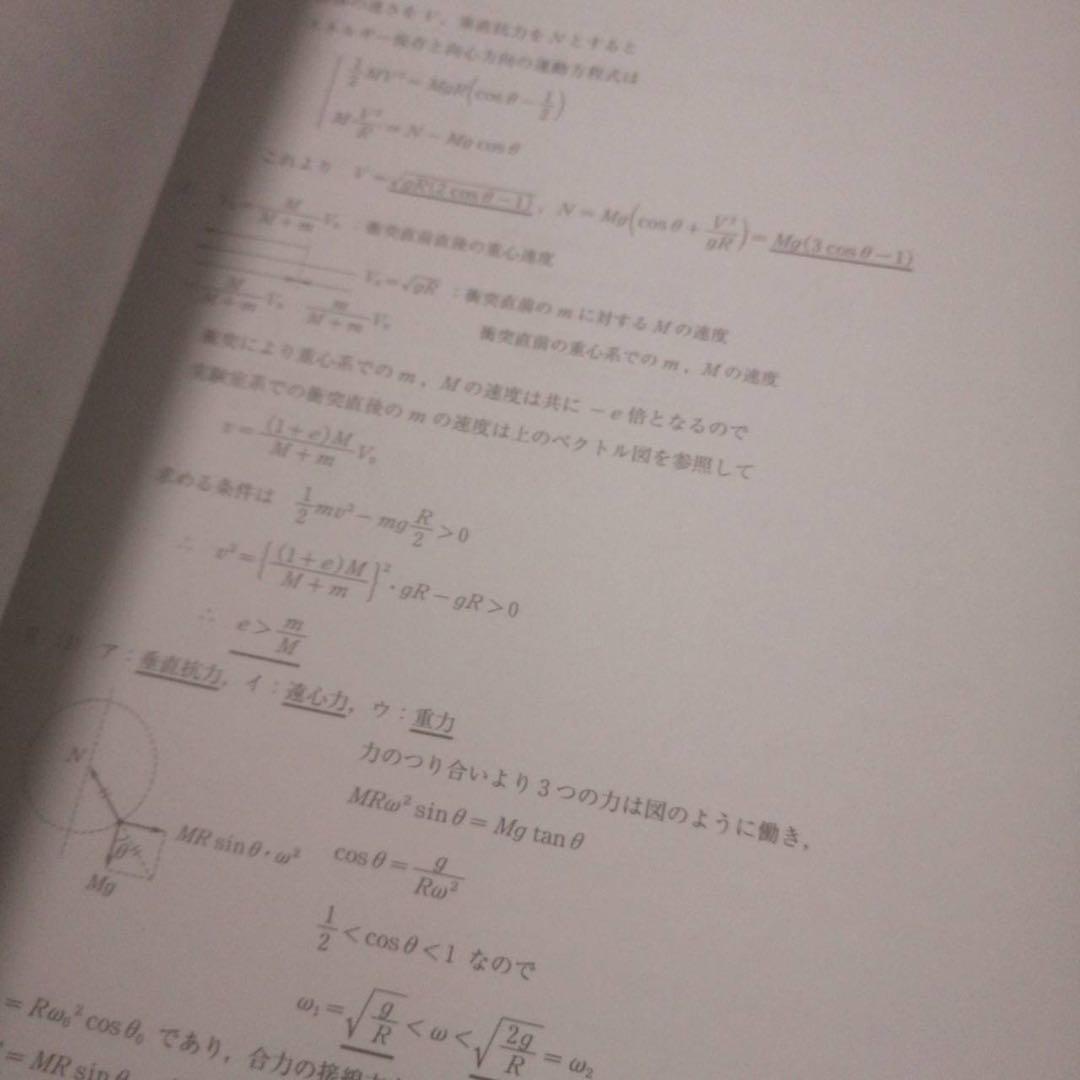 の速さをV，垂直抗力をNとすると
エネルギー保存と向心方向の運動方程式は
1/2 MV² = MgR(cosθ − 1/2)
M V²/R = N − Mg cosθ
これより V = √gR(2cosθ−1)， N = Mg(cosθ + V²/gR) = Mg(3cosθ−1)
M/M+m V₀ ：衝突直前直後の重心速度
V₀ = √gR ：衝突直前のmに対するMの速度
M/M+m V₀ m/M+m V₀ 衝突直前の重心系でのm，Mの速度
衝突により重心系でのm，Mの速度は共に −e倍となるので
実験室系での衝突直後のmの速度は上のベクトル図を参照して
v = (1+e)M/M+m V₀
求める条件は 1/2 mv² − mg R/2 > 0
∴ v² = [(1+e)M/M+m]²・gR − gR > 0
∴ e > m/M
ア：垂直抗力，イ：遠心力，ウ：重力
力のつり合いより3つの力は図のように働き，
MRω² sinθ = Mg tanθ
N
MR sinθ・ω²
θ
Mg
cosθ = g/Rω²
1/2 < cosθ < 1 なので
ω₁ = √g/R < ω < √2g/R = ω₂
= Rω₀² cosθ₀ であり，合力の接線
= MR sin